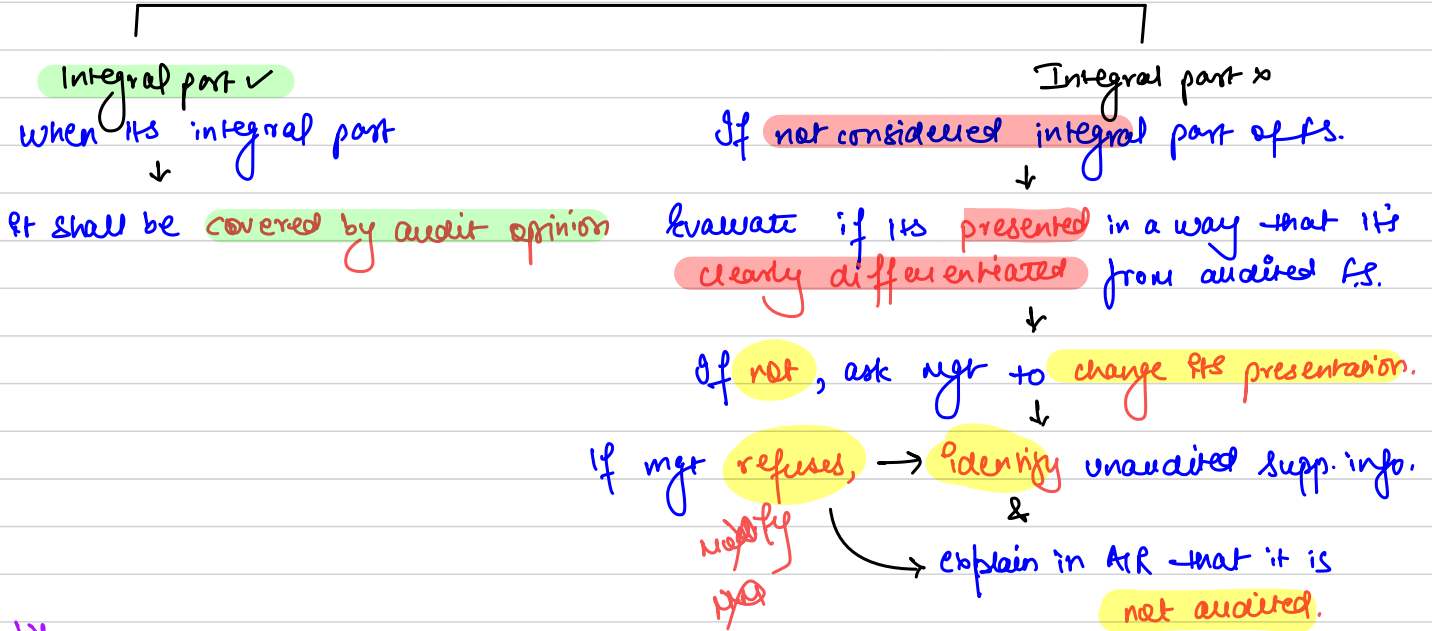 Integral part ✓
when its integral part
↓
It shall be covered by audit opinion
Integral part ×
If not considered integral part of fs.
↓
Evaluate if its presented in a way that it's
clearly differentiated from audited f.s.
↓
If not, ask mgt to change its presentation.
↓
If mgt refuses, → identify unaudited supp. info.
&
modify
explain in A/R that it is
not audited.